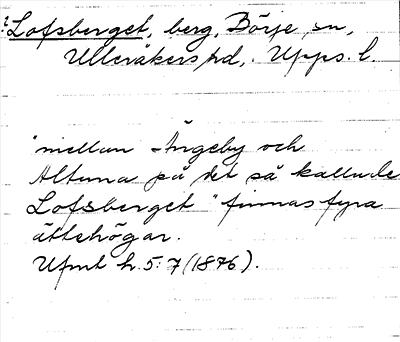 ? Lofsberget, berg, Börje sn,
Ulleråkers hd, Upps. l.
"mellan Ängeby och
Altuna på det så kallade
Lofsberget" finnas fyra
ättehögar.
Ufmt h. 5: 7 (1876).